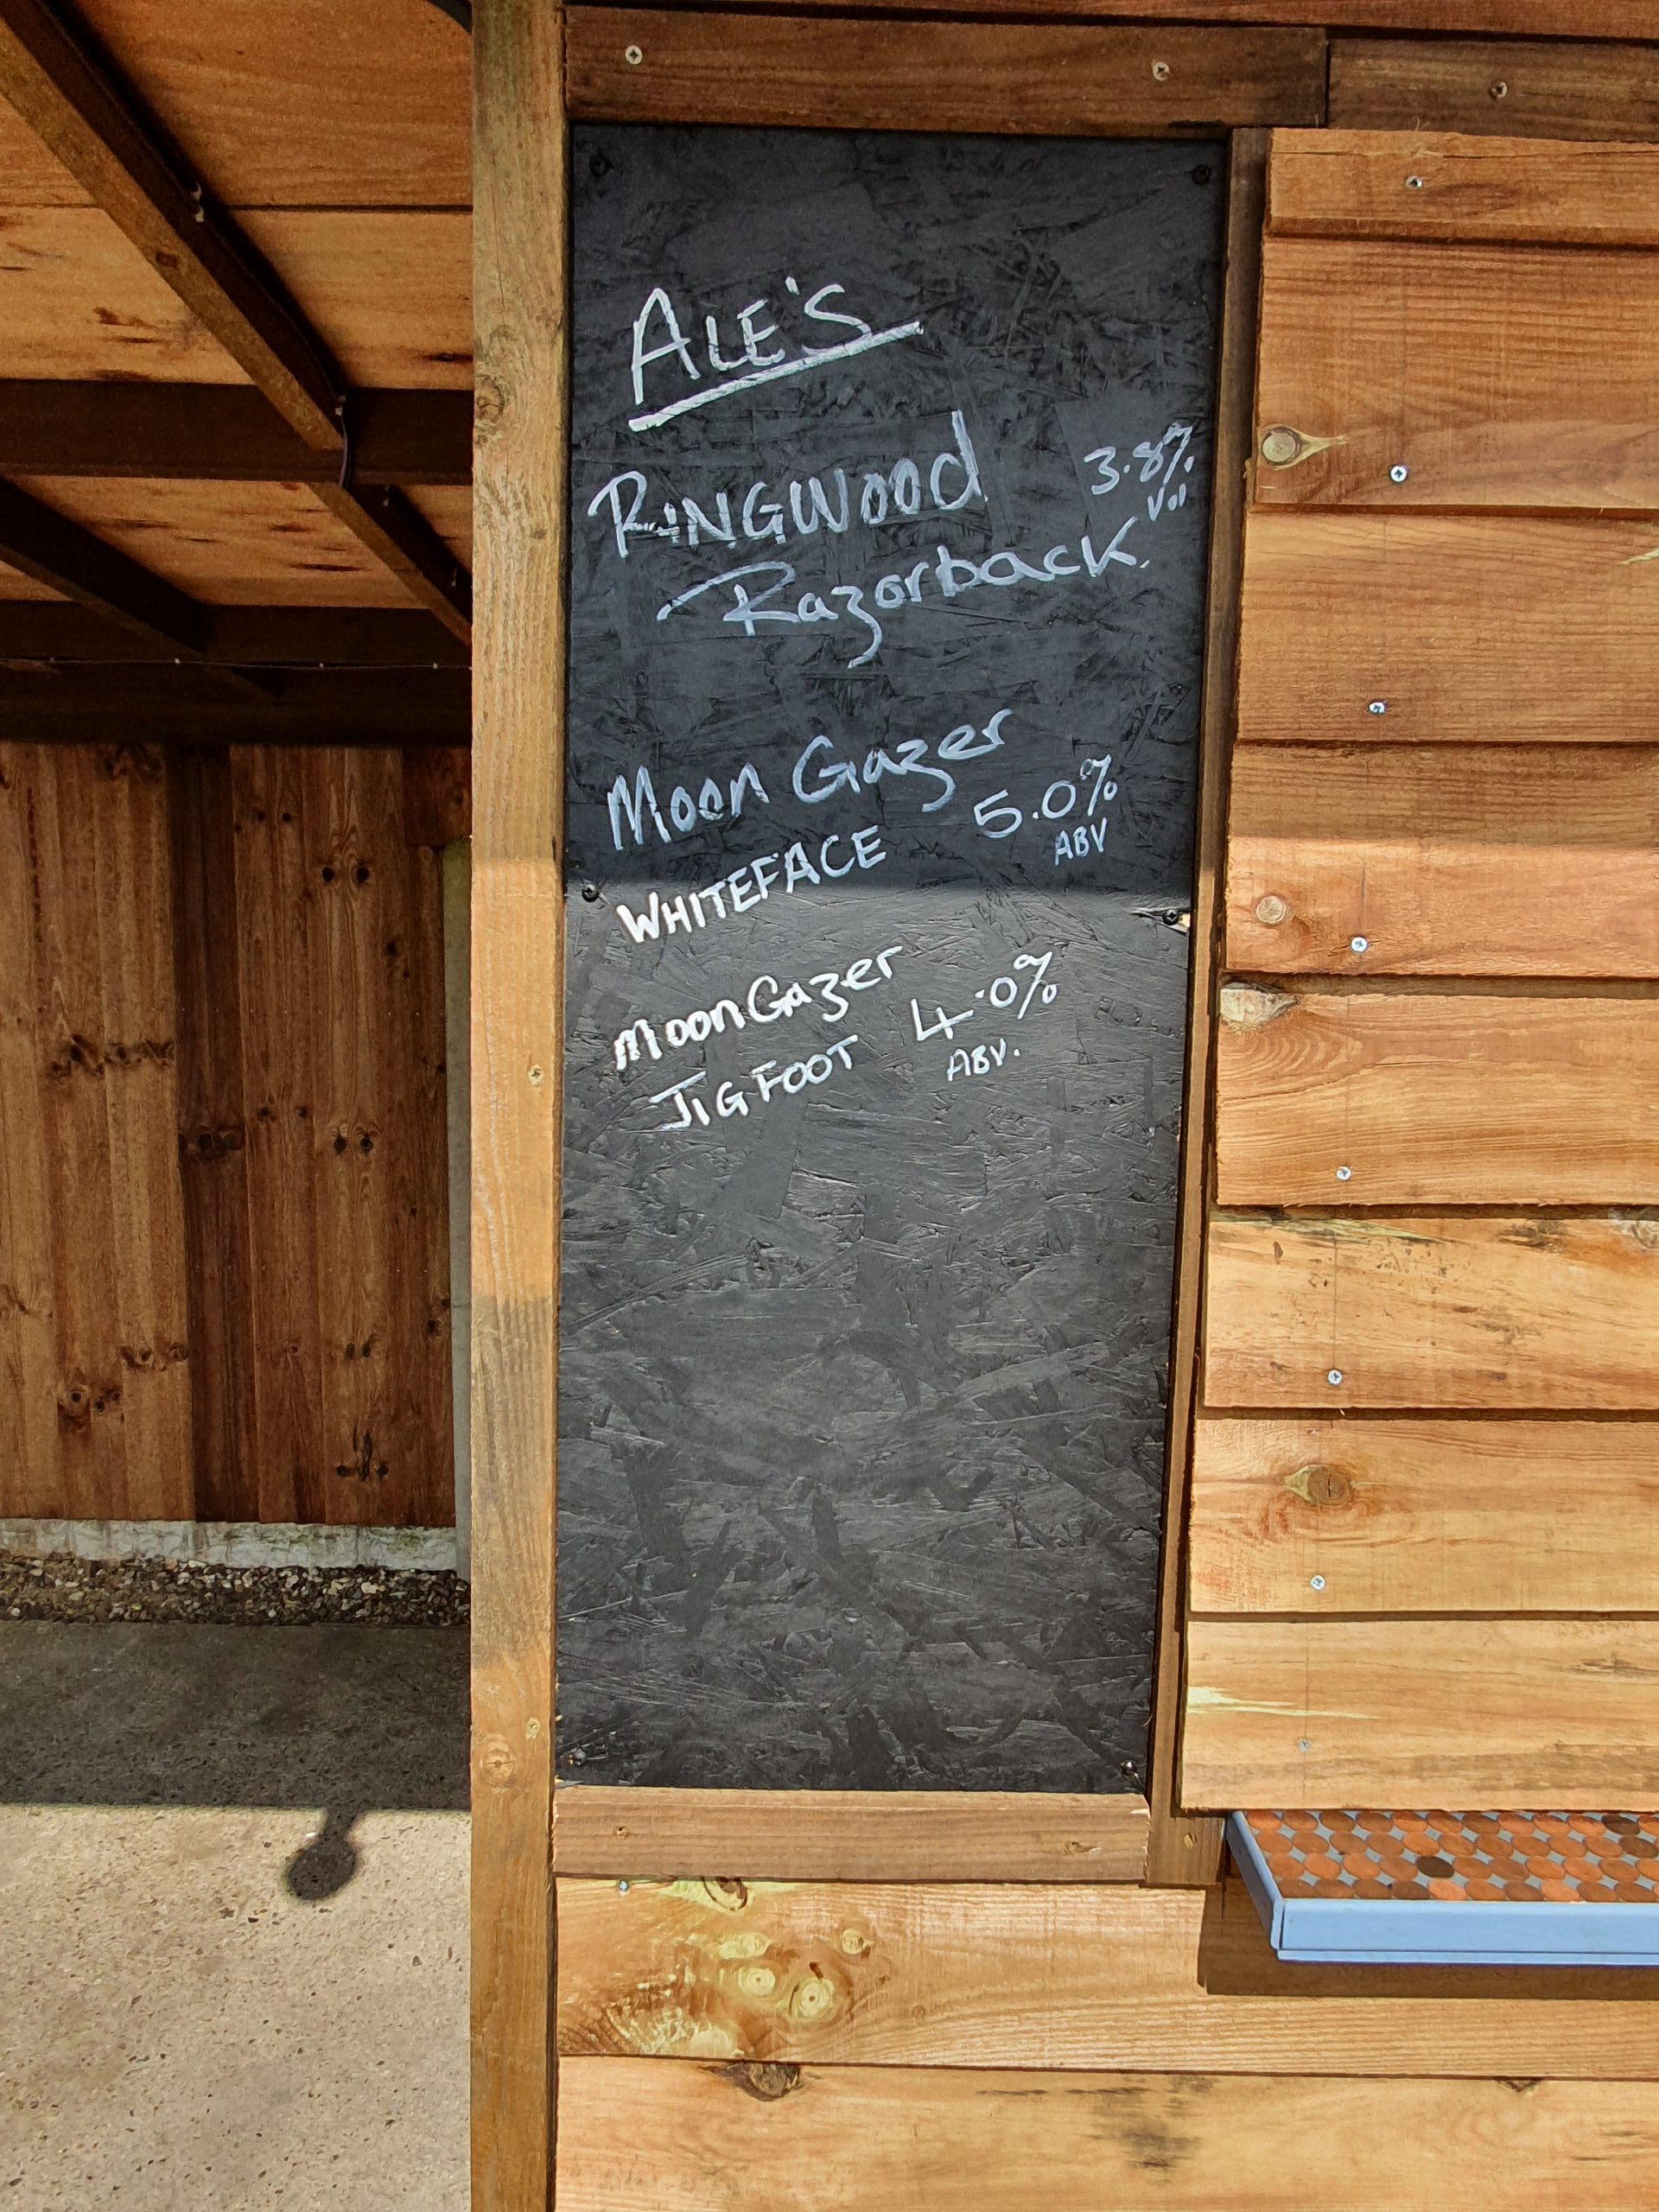 ALE'S
RINGWOOD 3.8%
Vol
Razorback.
Moon Gazer
WHITEFACE 5.0%
ABV
MoonGazer
JIGFOOT 4.0%
ABV.